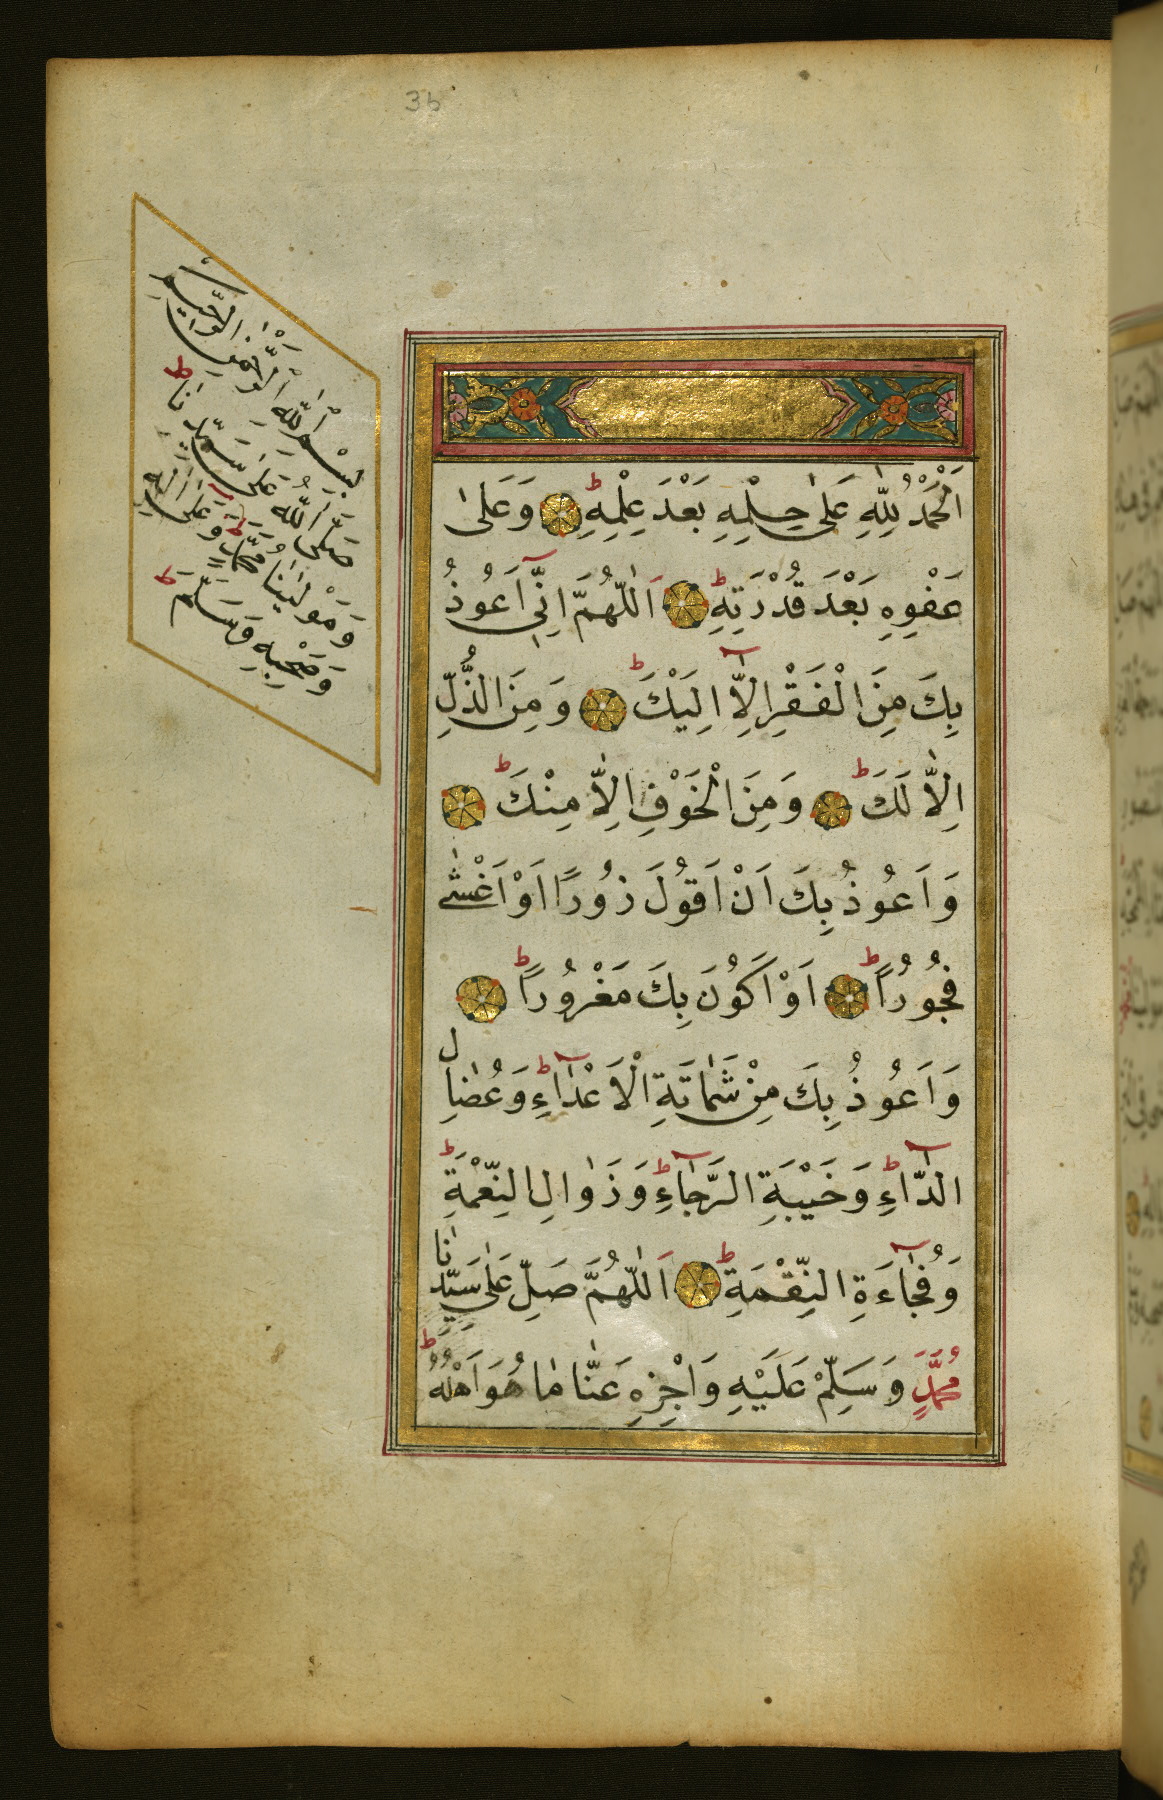 36
بِسْمِ اللّٰهِ الرَّحْمٰنِ الرَّحِيمِ
صَلَّى اللّٰهُ عَلٰى سَيِّدِنَا ط
وَمَوْلٰينَا مُحَمَّدٍ ط وَعَلٰى اٰلِهِ
وَصَحْبِهِ وَسَلَّمَ ط
اَلْحَمْدُ لِلّٰهِ عَلٰى حِلْمِهِ بَعْدَ عِلْمِهِ ط وَعَلٰى
عَفْوِهِ بَعْدَ قُدْرَتِهِ ط اَللّٰهُمَّ اِنِّٓي اَعُوذُ
بِكَ مِنَ الْفَقْرِ اِلَّٓا اِلَيْكَ ط وَمِنَ الذُّلِّ
اِلَّا لَكَ ط وَمِنَ الْخَوْفِ اِلَّا مِنْكَ ط
وَاَعُوذُ بِكَ اَنْ اَقُولَ زُورًا اَوْ اَغْشٰى
فُجُورًا ط اَوْ اَكُونَ بِكَ مَغْرُورًا ط
وَاَعُوذُ بِكَ مِنْ شَمَاتَةِ الْاَعْدَٓاءِ ط وَعُضَالِ
الدَّٓاءِ ط وَخَيْبَةِ الرَّجَٓاءِ ط وَزَوَالِ النِّعْمَةِ ط
وَفُجَٓاءَةِ النِّقْمَةِ ط اَللّٰهُمَّ صَلِّ عَلٰى سَيِّدِنَا
مُحَمَّدٍ وَسَلِّمْ عَلَيْهِ وَاجْزِهِ عَنَّا مَا هُوَ اَهْلُهُ ط